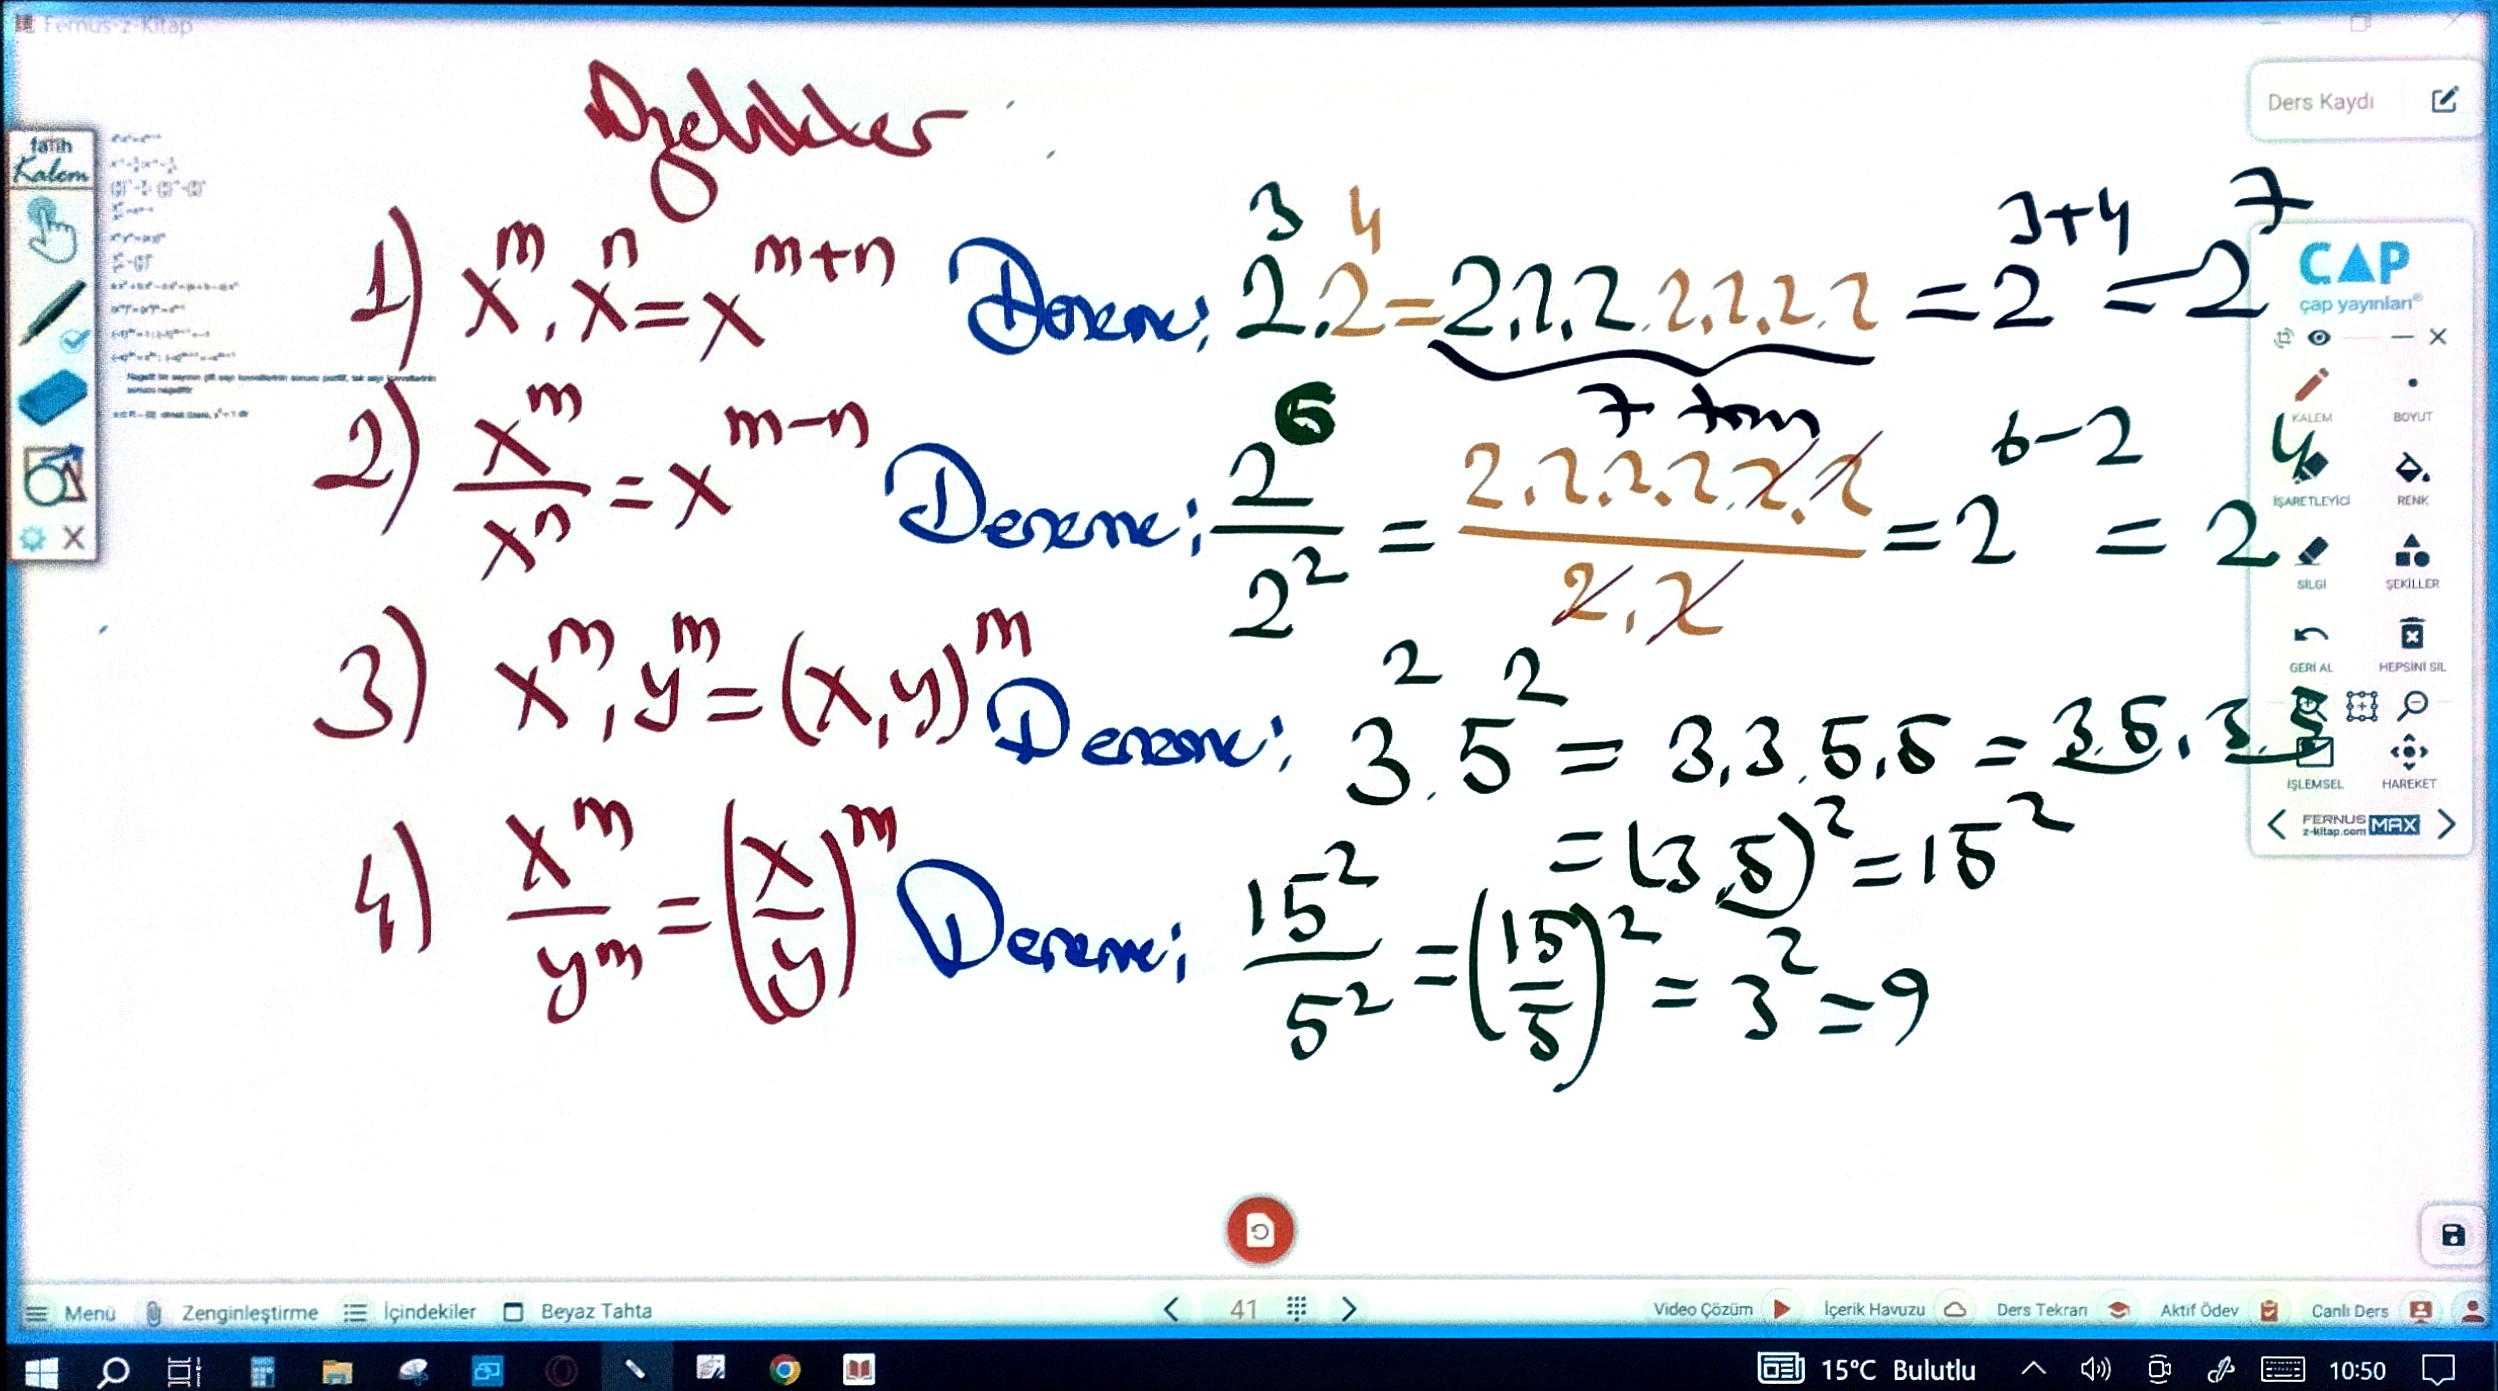 Fernus-z-Kitap
Ders Kaydı
fatih
Kalem
Özellikler
1) x^m . x^n = x^(m+n) Deneme; 2^3 . 2^4 = 2.2.2.2.2.2.2 = 2^(3+4) = 2^7
7 tane
2) x^m / x^n = x^(m-n) Deneme; 2^6 / 2^2 = 2.2.2.2.2.2 / 2.2 = 2^(6-2) = 2^4
3) x^m . y^m = (x.y)^m Deneme; 3^2 . 5^2 = 3.3.5.5 = 3.5.3.5
= (3.5)^2 = 15^2
4) x^m / y^m = (x/y)^m Deneme; 15^2 / 5^2 = (15/5)^2 = 3^2 = 9
Negatif bir sayının çift sayı kuvvetlerinin sonucu pozitif, tek sayı kuvvetlerinin
sonucu negatiftir
ÇAP
çap yayınları®
KALEM BOYUT
İŞARETLEYİCİ RENK
SİLGİ ŞEKİLLER
GERİ AL HEPSİNİ SİL
İŞLEMSEL HAREKET
FERNUS
z-kitap.com MAX
Menü Zenginleştirme İçindekiler Beyaz Tahta 41 Video Çözüm İçerik Havuzu Ders Tekrarı Aktif Ödev Canlı Ders
15°C Bulutlu 10:50